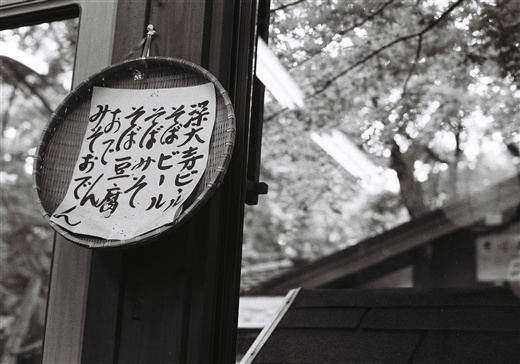 深大寺ビール
そばビール
そばみそ
そば豆腐
おでん
みそおでん